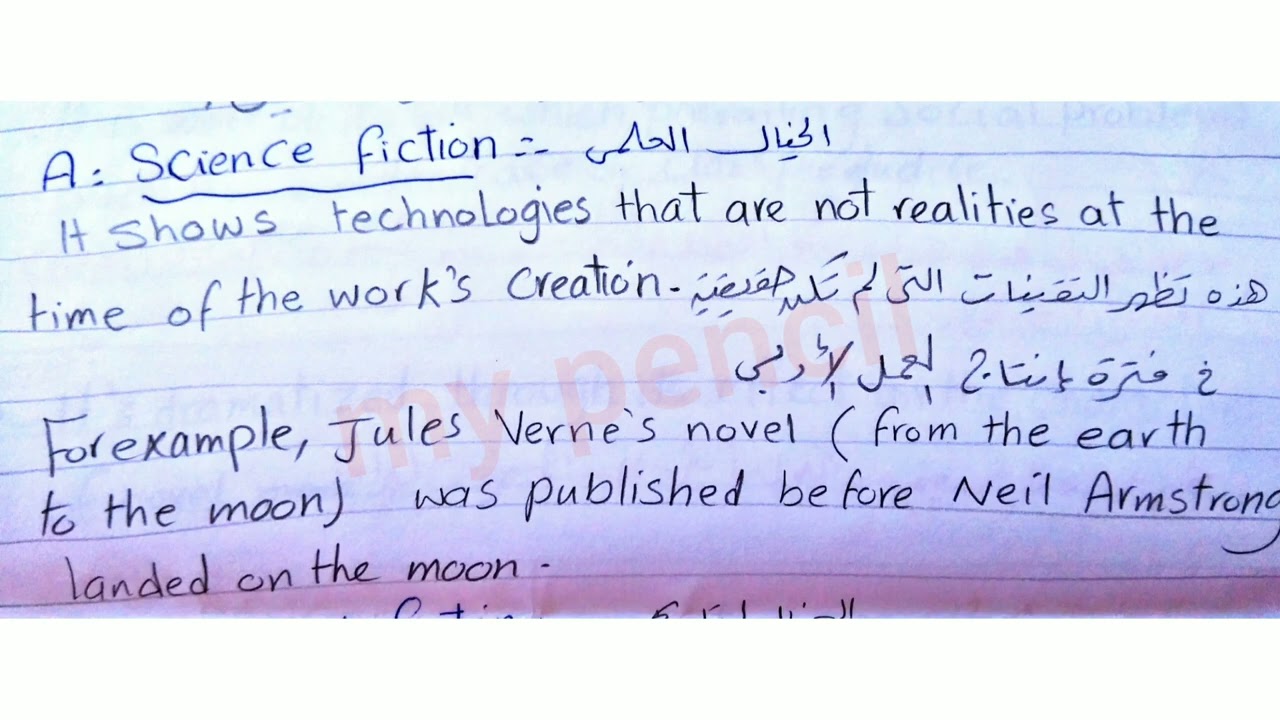 A: Science fiction :- الخيال العلمي
It shows technologies that are not realities at the
time of the work's creation. هذه تظهر التقنيات التي لم تكن حقيقية
في فترة إنتاج العمل الأدبي
For example, Jules Verne's novel (from the earth
to the moon) was published before Neil Armstrong
landed on the moon.
my pencil